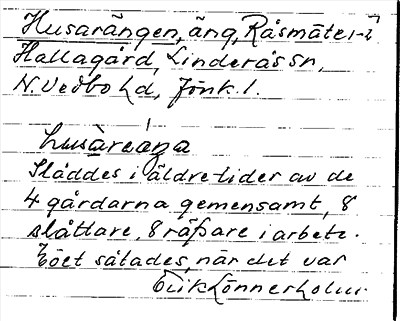 Husarängen, äng, Råsmäte i
Hallagård, Linderås sn,
N. Vedbo hd, Jönk. l.
husàreaga
Slåddes i äldre tider av de
4 gårdarna gemensamt, 8
slåttare, 8 räfsare i arbete.
såtades, när det var
Erik Lönnerholm.